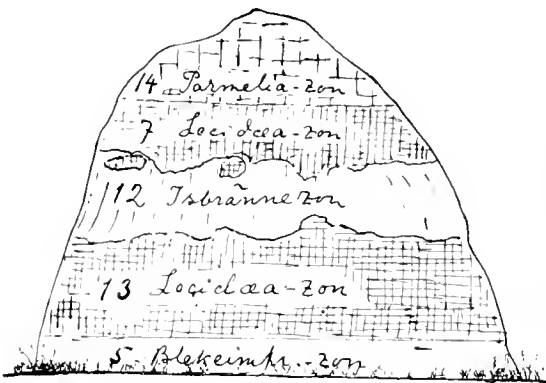 14 Parmelia-zon
7 Lecidæa-zon
12 Isbränne zon
13 Lecidæa-zon
5 -zon